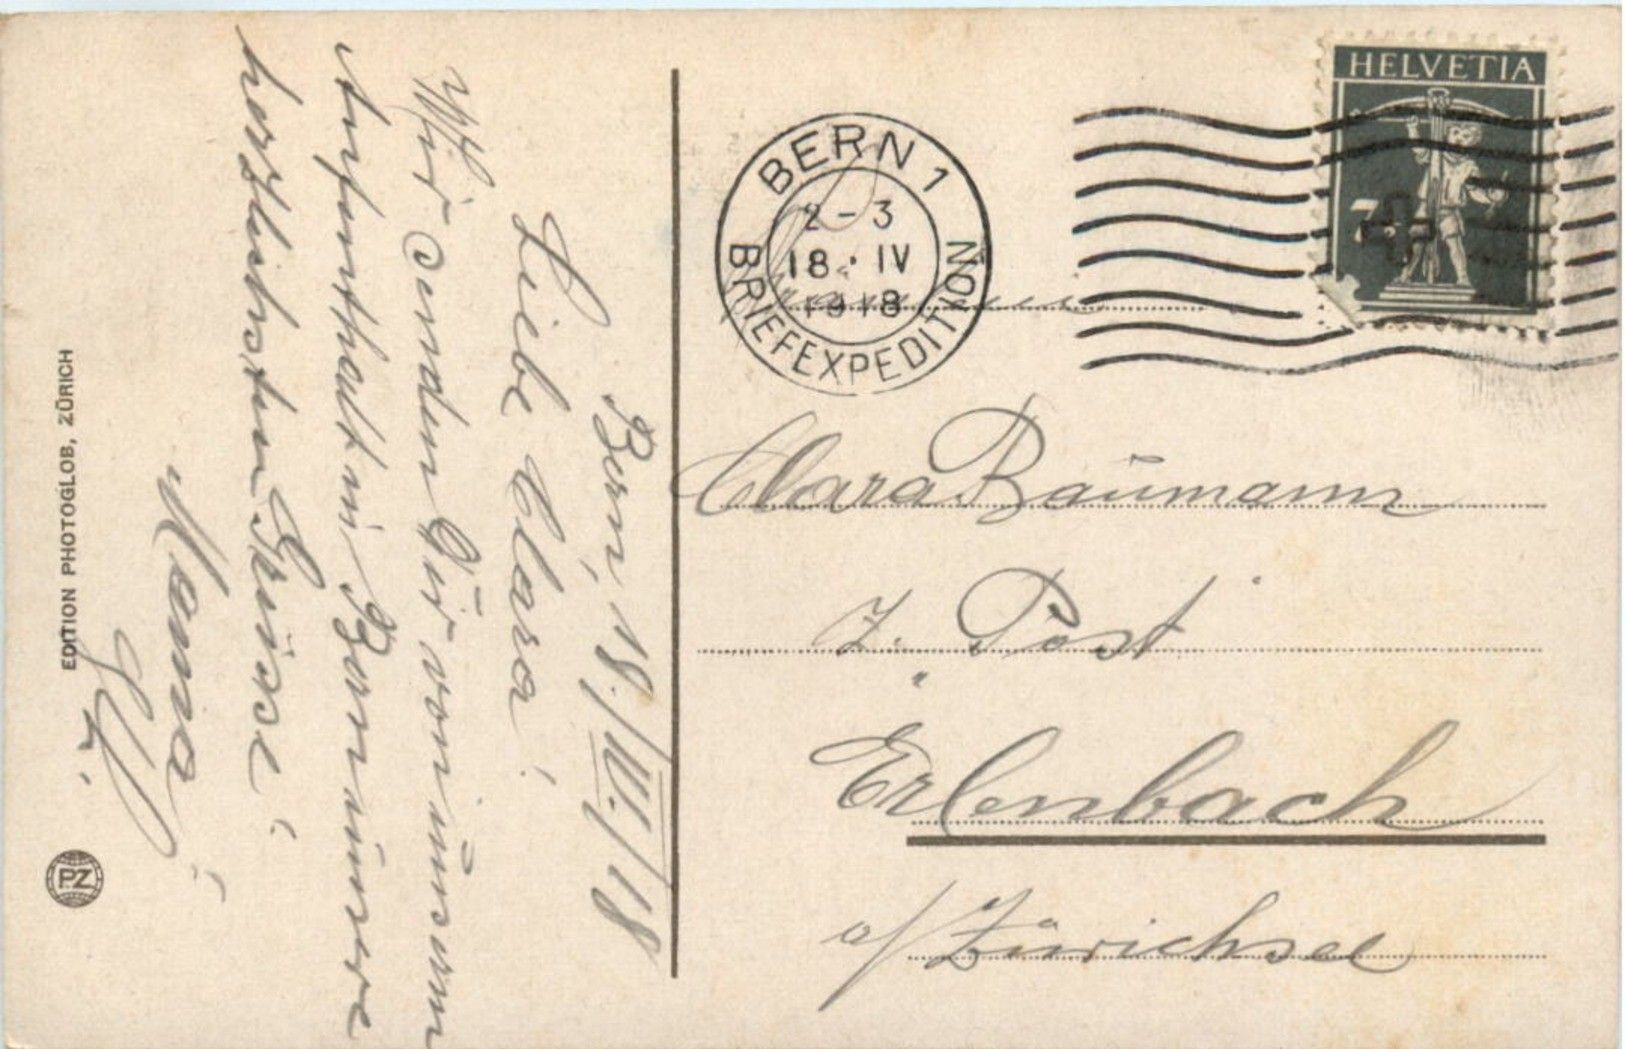 Bern, 18./IV./18
Liebe Clara!
Wir senden Dir von unserm
Aufenthalt in Bern unsere
herzlichsten Grüsse!
Mama
EDITION PHOTOGLOB, ZÜRICH
PZ
BERN 1
2-3
18·IV
1918
BRIEFEXPEDITION
HELVETIA
Clara Baumann
z. Post
Erlenbach
a/Zürichsee